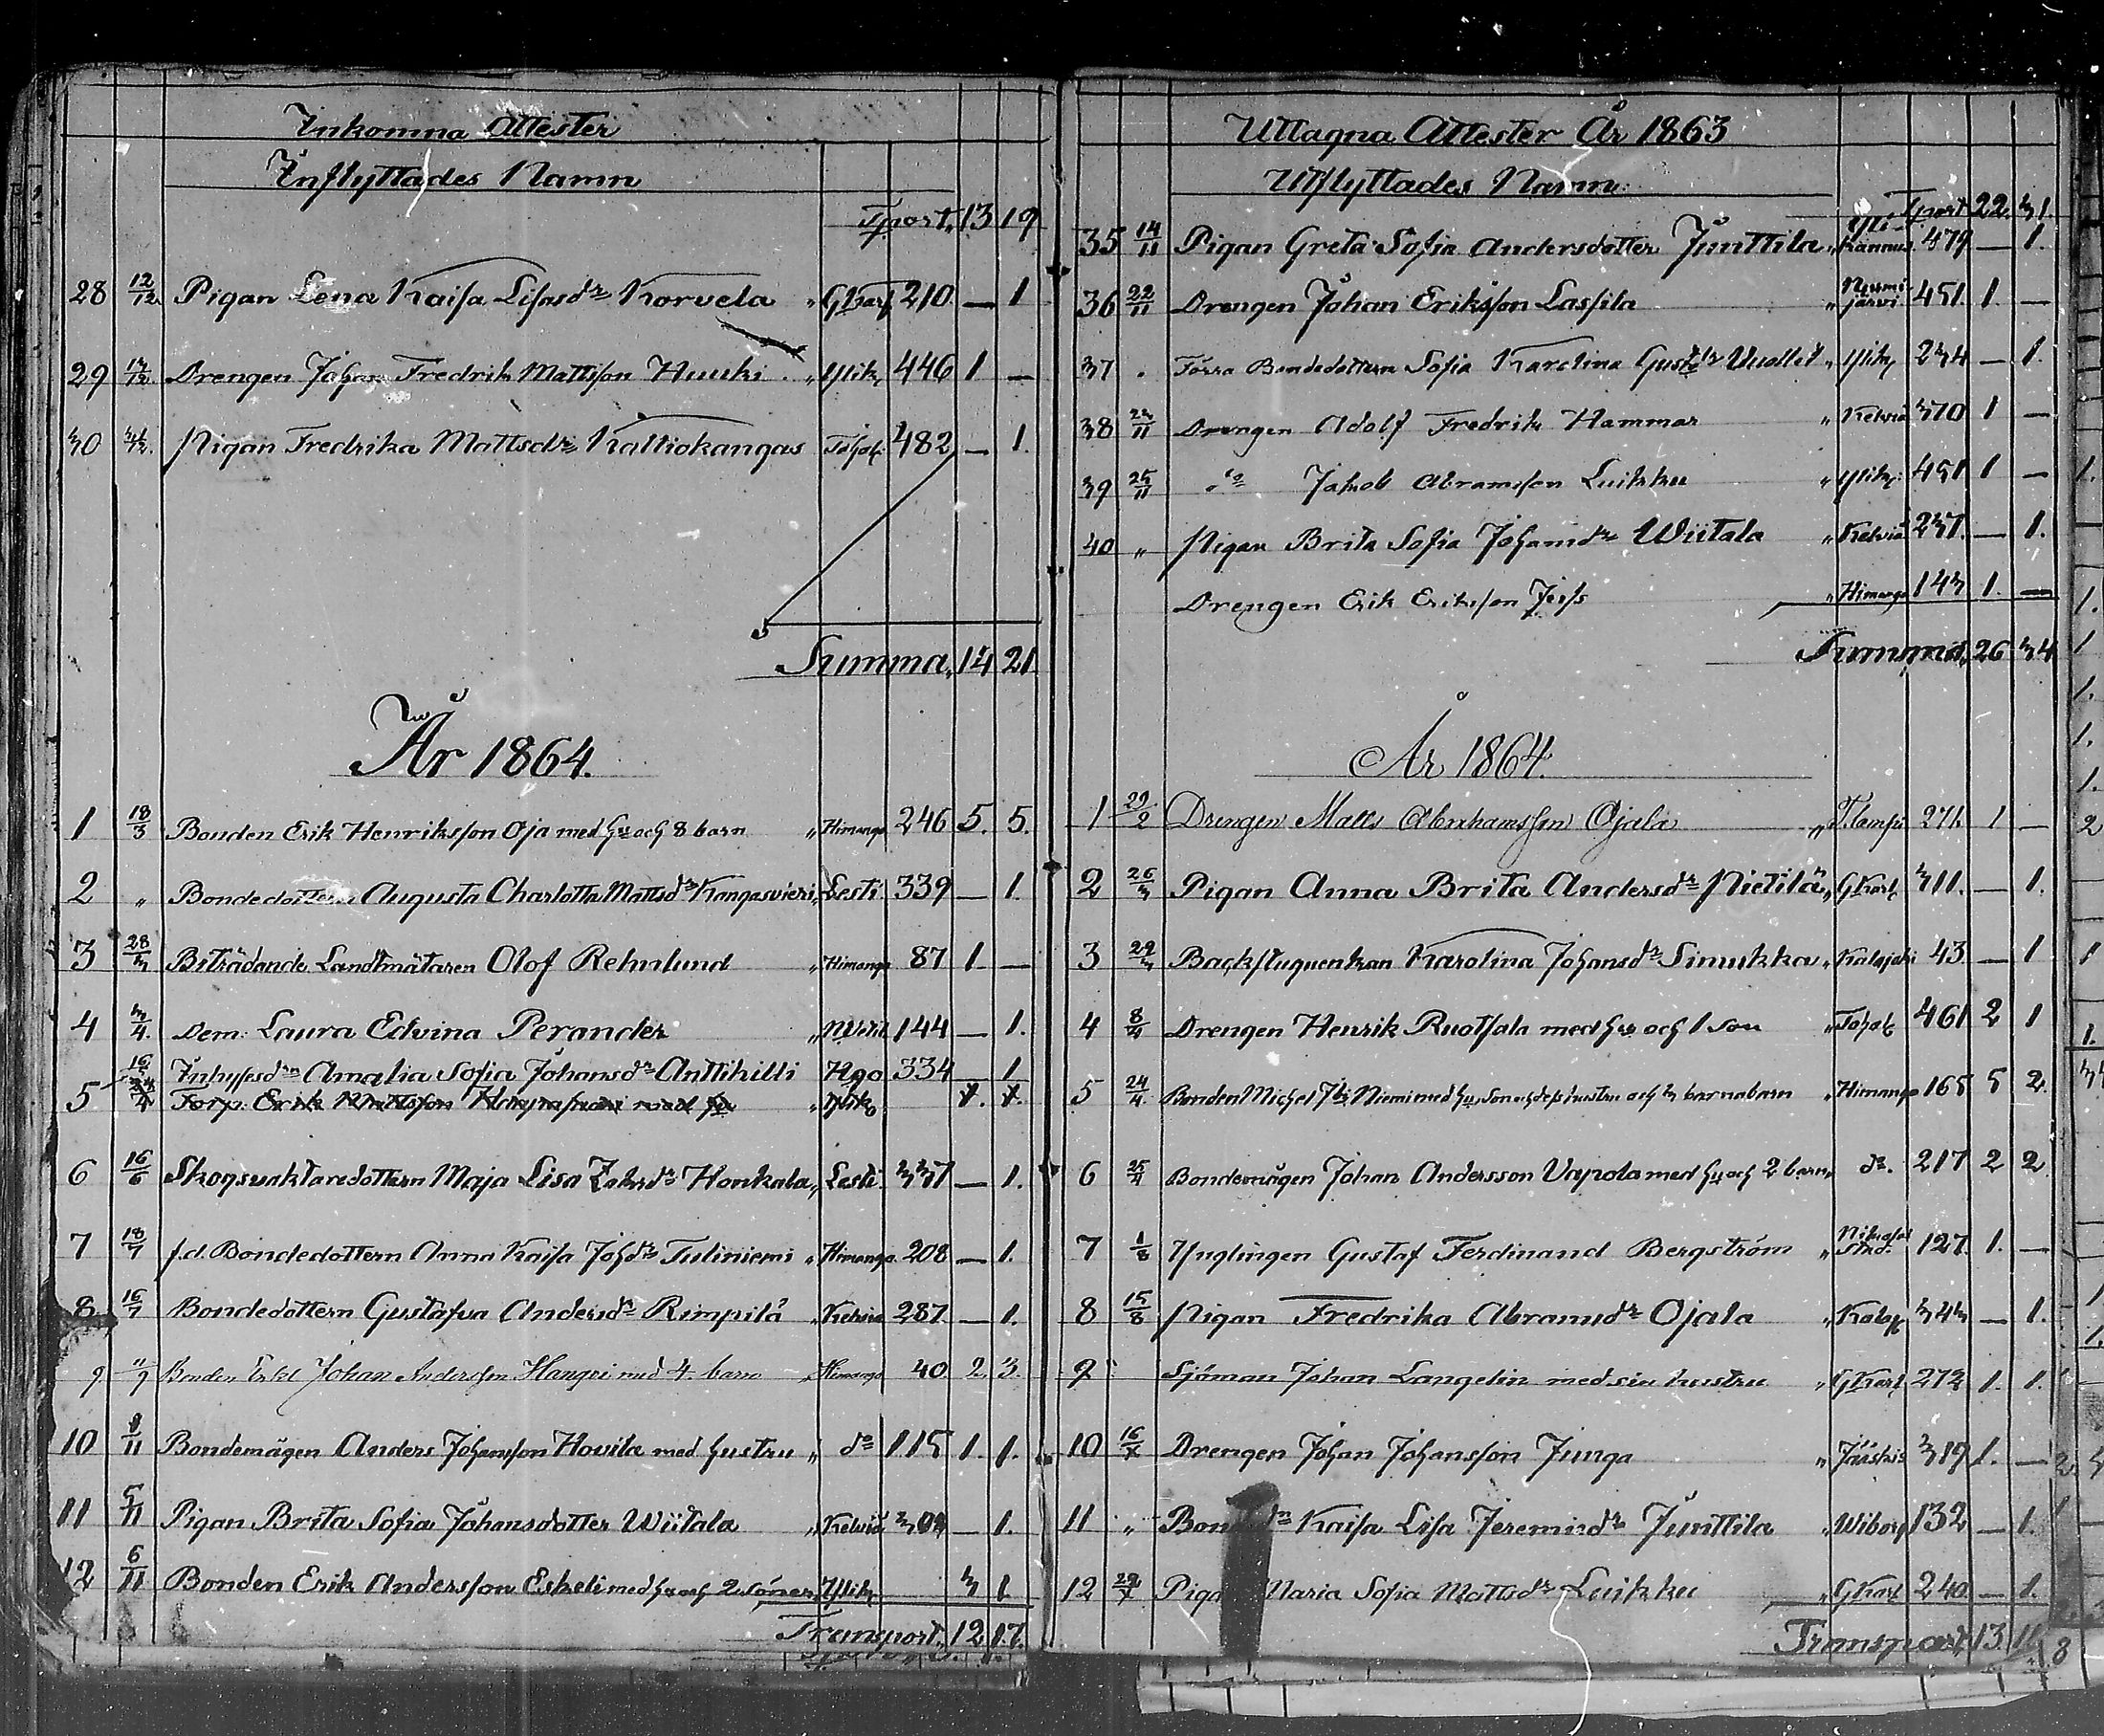 Inkomna Attester
Inflyttades Namn
Tport. 13 19
28 12/12 Pigan Lena Kaisa Lisasdr Korvela " GKarl 210 — 1
29 Drengen Johan Fredrik Mattsson Huuki " Ylik 446 1 —
30 Pigan Fredrika Mattsdr Kaltiokangas Toho 482 — 1.
Summa, 14 21
År 1864.
1 18/3 Bonden Erik Henriksson Oja med hu och 8 barn " Himango 246 5. 5.
2 " Bondedottern Augusta Charlotta Mattsdr Kangasvieri " Lesti 339 — 1.
3 28/3 Biträdande Landtmätaren Olof Rehnlund " Himango 87 1 —
4 3/4. Dem. Laura Edvina Perander " 144 — 1.
5 Inhysesdrn Amalia Sofia Johansdr Anttihilli Hgo 334 1
Torp. Erik Mattsson
6 16/6 Skogsvaktaredottern Maja Lisa Honkala " Lesti. 337 — 1.
7 18/7 f.d. Bondedottern Anna Kaisa Johdr Tuliniemi " Himango. 208 — 1.
8 16/7 Bondedottern Gustafva Andersdr Rimpilä " Kelviå 287 — 1.
9 11/9 Bonden Enkl Johan Andersson Hangvi med 4 barn " Himango 40 2 3.
10 9/11 Bondemågen Anders Johansson Hovila med hustru " do 115 1. 1.
11 5/11 Pigan Brita Sofia Johansdotter Wiitala " Kelviå — 1.
12 6/11 Bonden Erik Andersson Eskeli med hu och 2 söner " Ylik 3 1
Transport. 12 17.
Uttagna Attester År 1863
Utflyttades Namn
Tport 22. 31.
35 14/11 Pigan Greta Sofia Andersdotter Junttila " Yli-Kannus. 479 — 1.
36 22/11 Drengen Johan Eriksson Lassila " Nurmijärvi 451. 1. —
37 " Förra Bondedottern Sofia Karolina Gustdr " Ylik 234 — 1.
38 23/11 Drengen Adolf Fredrik Hammar " Kelviå 370 1 —
39 25/11 "do Jakob Abramsson Luikku " Ylik 451 1 —
40 " Pigan Brita Sofia Johansdr Wiitala " Kelviå 237. — 1.
Drengen Erik Eriksson " Himango 143 1. —
Summa, 26 34
År 1864.
1 29/2 Drengen Matts Abrahamsson Ojala " 271. 1 —
2 26/3 Pigan Anna Brita Andersdr Pietilä " GKarl 311. — 1.
3 29/3 Backstuguenkan Karolina Johansdr Simukka " Kalajoki 43 — 1
4 8/4 Drengen Henrik Ruotsala med hu och 1 son " Toho 461 2 1
5 24/4 Bonden Michel Niemi med hu, son och dess hustru och 3 barnabarn " Himango 165 5 2.
6 25/4 Bondemågen Johan Andersson Vapola med hu och 2 barn " do. 217 2 2
7 1/8 Ynglingen Gustaf Ferdinand Bergström " Nikolai Stad. 127. 1. —
8 15/8 Pigan Fredrika Abramsdr Ojala " Kalaj 343 — 1.
9 Sjöman Johan Langelin med sin hustru " GKarl 273 1. 1.
10 16/X Drengen Johan Johansson Junga " 319 1. —
11 " Kaisa Lisa Jeremiedr Junttila " Wiborg 132 — 1.
12 29/X Pigan Maria Sofia Mattsdr Luikku " GKarl 240. — 1.
Transport. 13 11